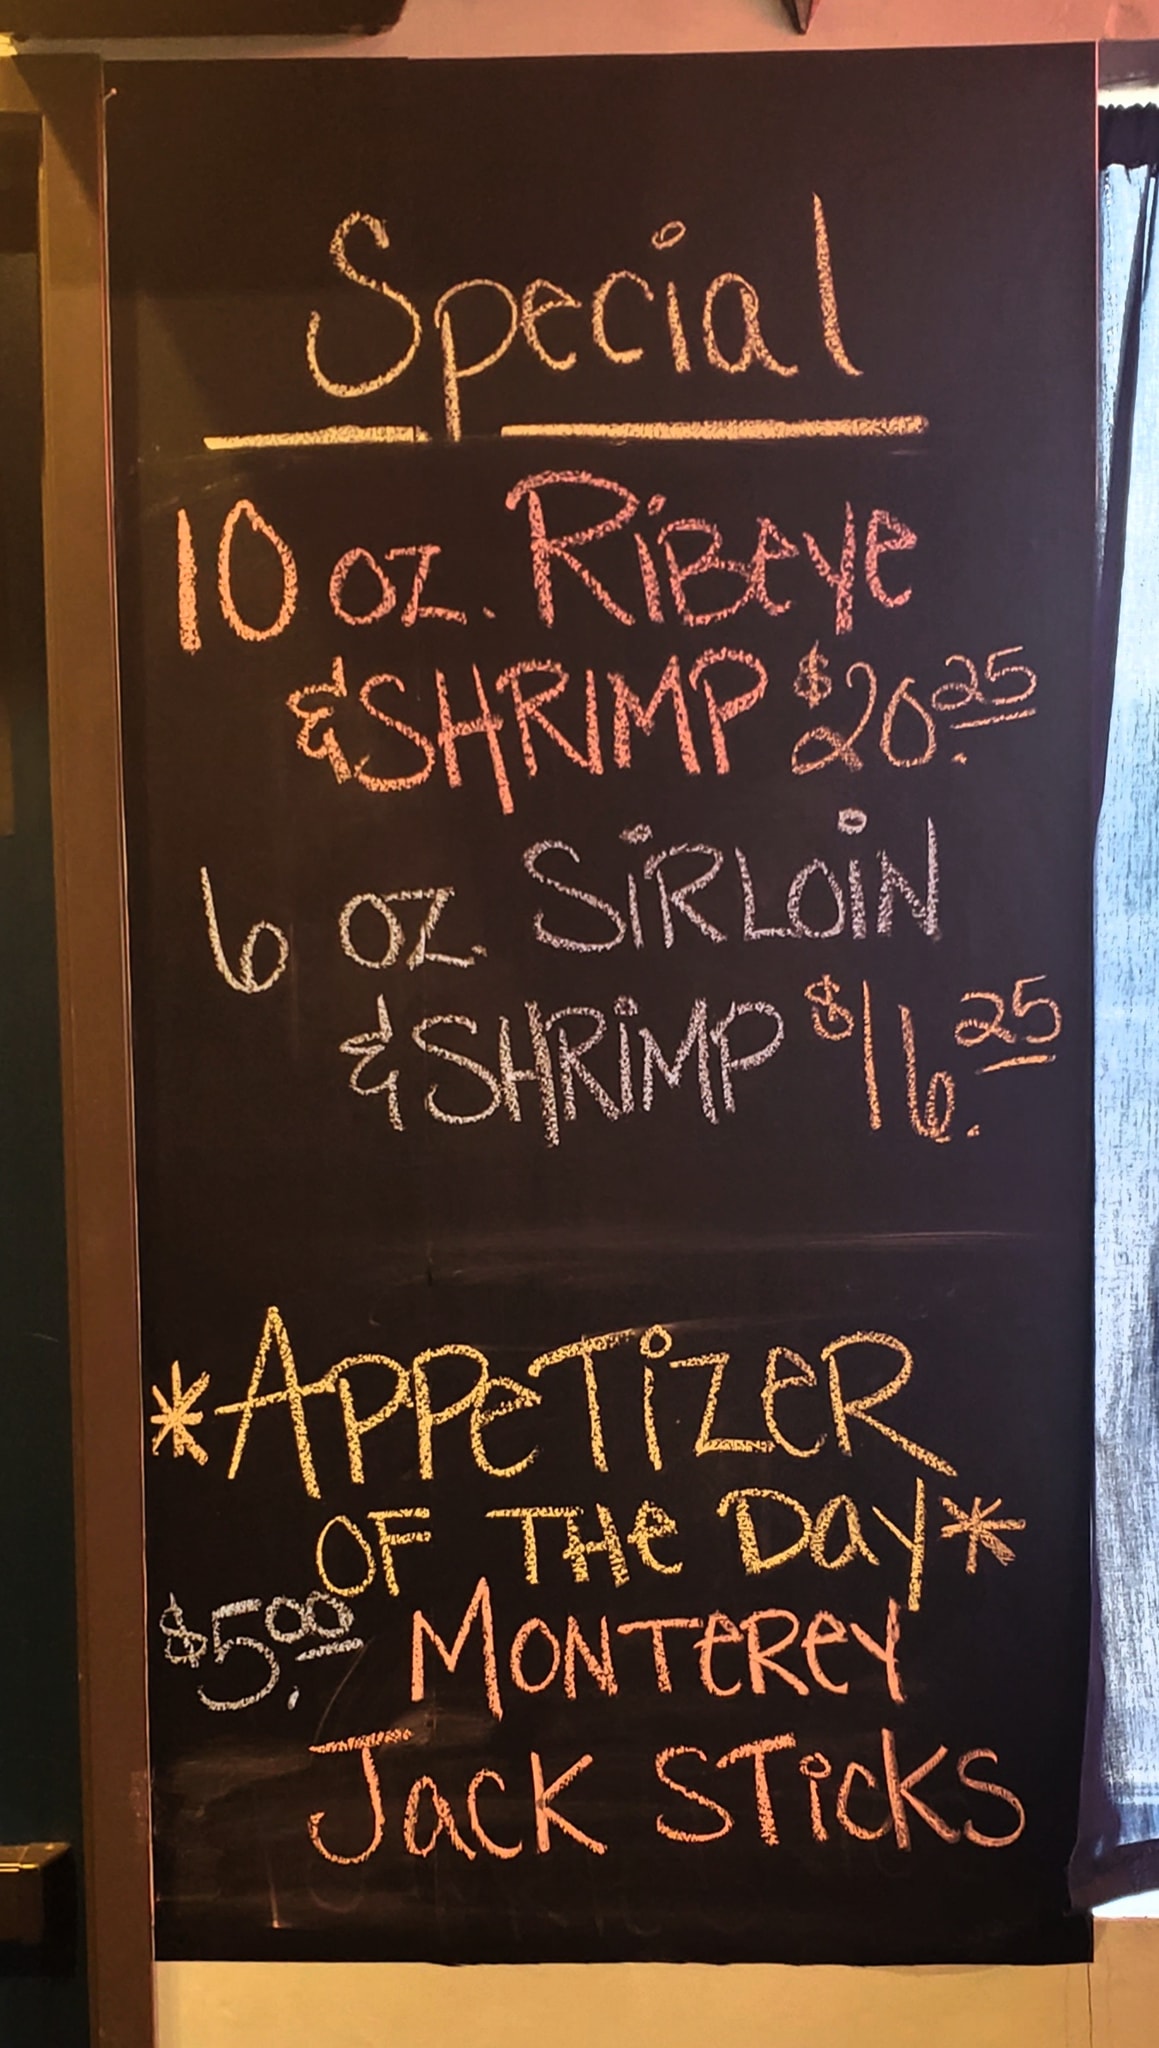 Special
10 oz. RiBeye
& SHRIMP $20.25
6 oz. SiRLOiN
& SHRiMP $16.25
*APPeTiZeR
OF THe Day*
$5.00 MONTeReY
JacK STicKS